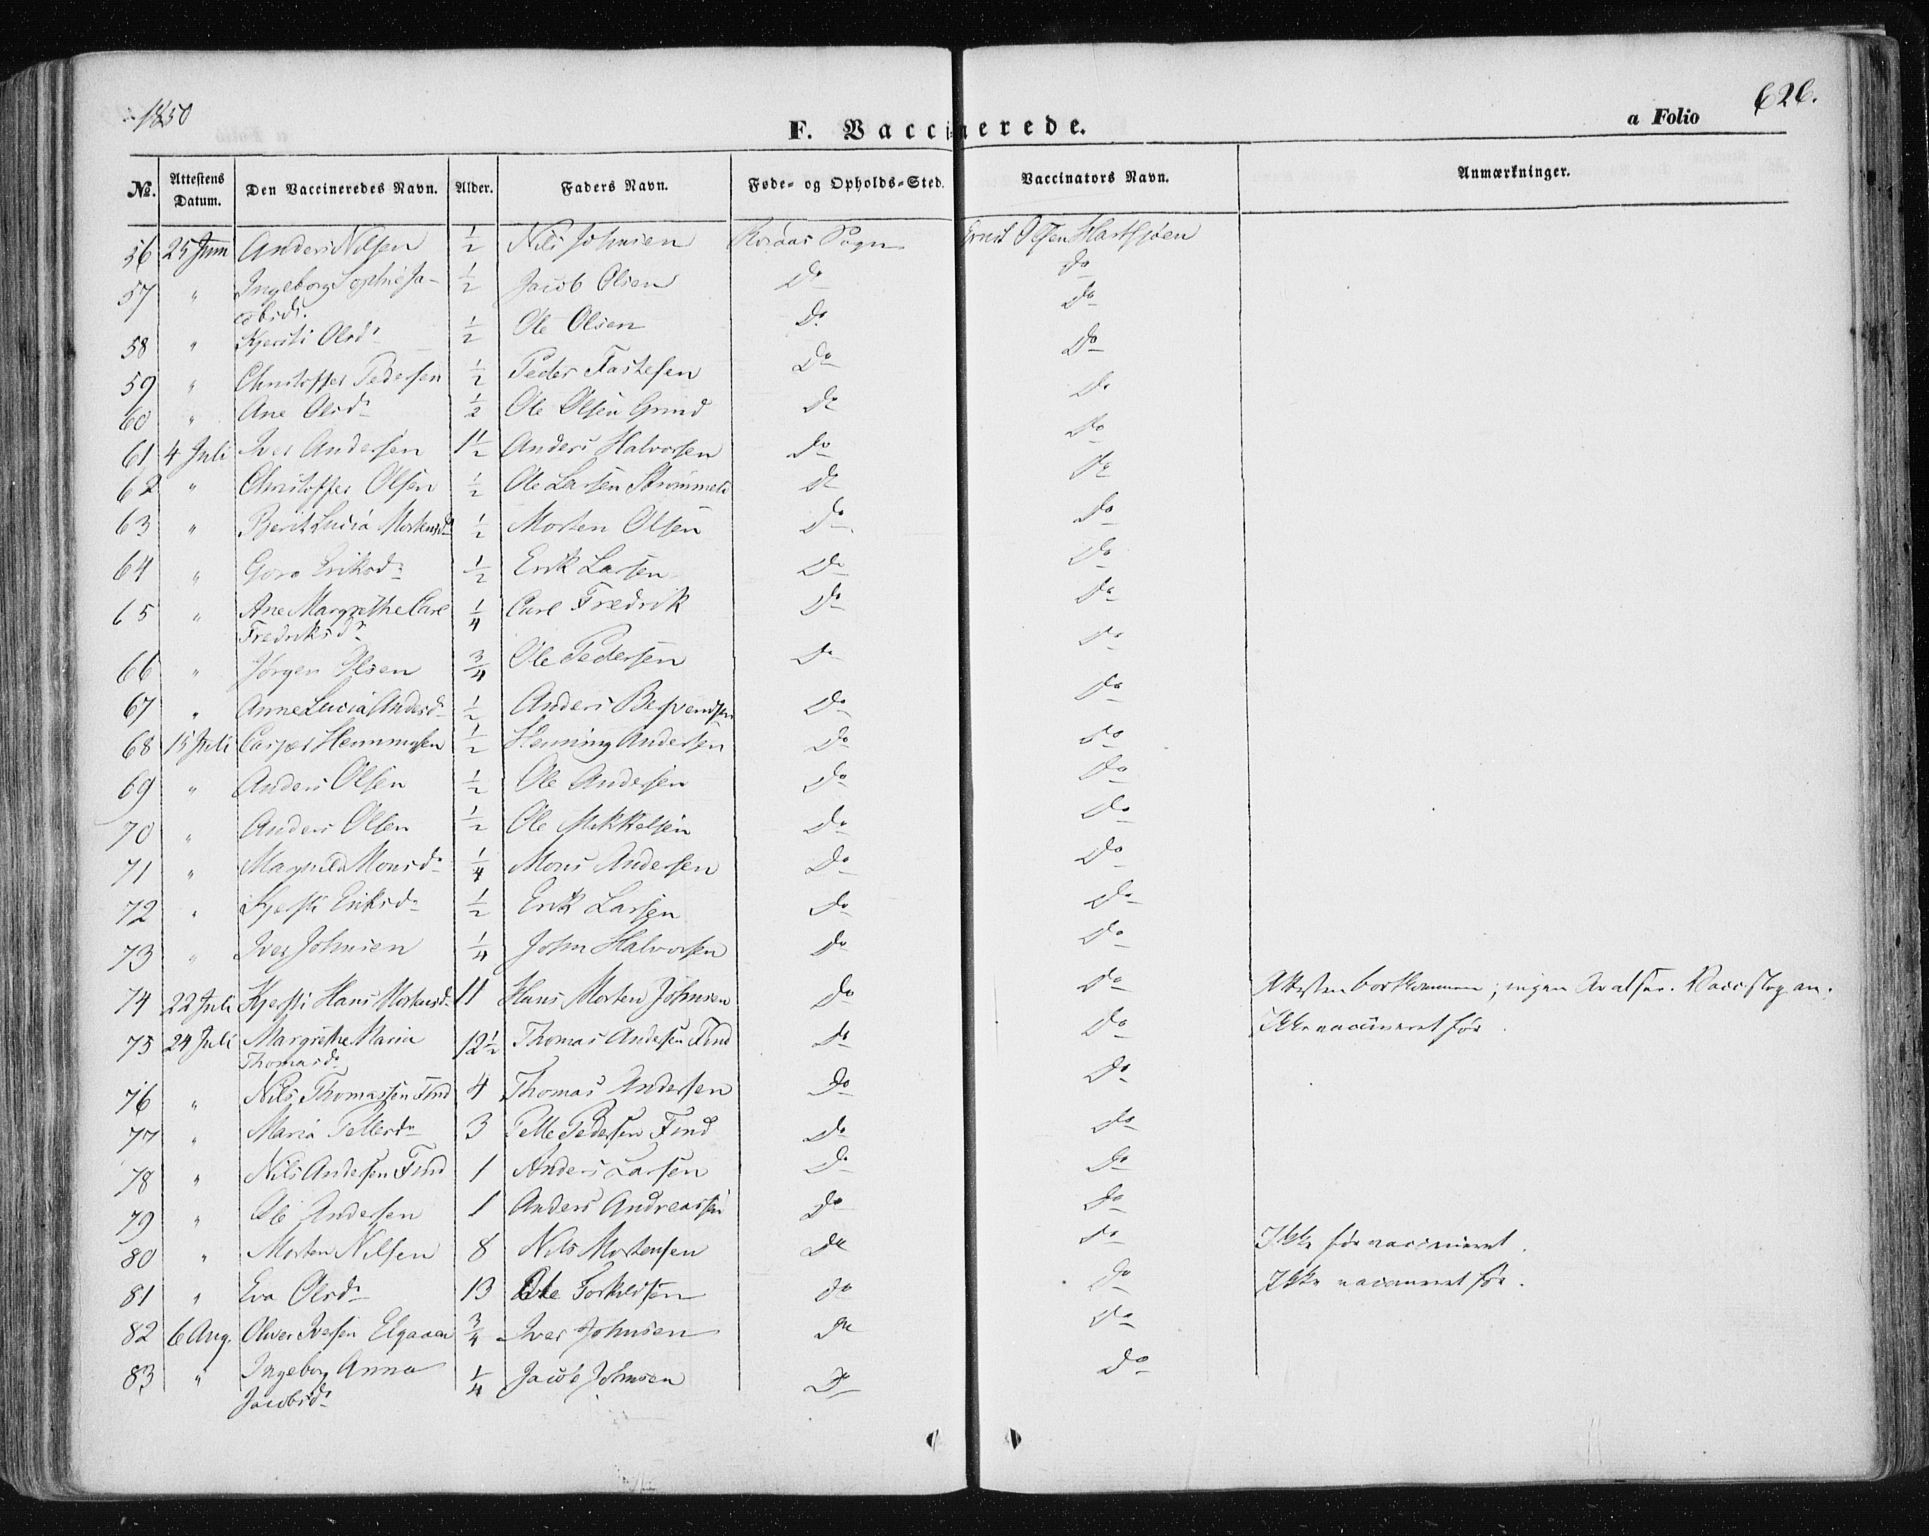 1850
626.
F. Vaccinerede.
a Folio
No. Attestens Datum. Den Vaccineredes Navn. Alder. Faders Navn. Føde- og Opholds-Sted. Vaccinators Navn. Anmærkninger.
56 25 Juni Anders Nilsen 1/2 Nils Johnsen Røraas Sogn Ernst Olsen
57 " Ingeborg Sophie Ja- 1/2 Jacob Olsen Do Do
cobsdr.
58 " Kjersti Olsdr 1/2 Ole Olsen Do Do
59 " Christoffer Pedersen 1/2 Peder Fastesen Do Do
60 " Ane Olsdr 1/2 Ole Olsen Grind Do Do
61 4 Juli Iver Andersen 11/2 Anders Halvorsen Do Do
62 " Christoffer Olsen 1/2 Ole Larsen Do Do
63 " Berit Lucia Mortensdr 1/2 Morten Olsen Do Do
64 " Goro Eriksdr 1/2 Erik Larsen Do Do
65 " Ane Margrethe Carl 1/4 Carl Fredrik Do Do
Fredriksdr
66 " Jørgen Olsen 3/4 Ole Pedersen Do Do
67 " Anne Lucia Andersdr 1/2 Anders Do Do
68 15 Juli Casper Henningsen 1/2 Henning Andersen Do Do
69 " Anders Olsen 1/2 Ole Andersen Do Do
70 " Anders Olsen 1/2 Ole Mikkelsen Do Do
71 " Magnild Monsdr 1/4 Mons Andersen Do Do
72 " Kjersti Eriksdr 1/2 Erik Larsen Do Do
73 " Iver Johnsen 1/4 John Halvorsen Do Do
74 22 Juli Kjersti Hans Mortensdr 11 Hans Morten Johnsen Do Do Attesten bortkommen; ingen
75 24 Juli Margrethe Maria 12 1/2 Thomas Andersen Find Do Do Ikke vaccineret før.
Thomasdr
76 " Nils Thomassen Find 4 Thomas Andersen Do Do
77 " Maria Pellesdr 3 Pelle Pedersen Find Do Do
78 " Nils Andersen Find 1 Anders Larsen Do Do
79 " Ole Andersen 1 Anders Andreassen Do Do
80 " Morten Nilsen 8 Nils Mortensen Do Do Ikke før vaccineret.
81 " Eva Olsdr 13 Ole Torkildsen Do Do Ikke vaccineret før.
82 6 Aug. Oliver Iversen Elgaaen 3/4 Iver Johnsen Do Do
83 " Ingeborg Anna 1/4 Jacob Johnsen Do Do
Jacobsdr